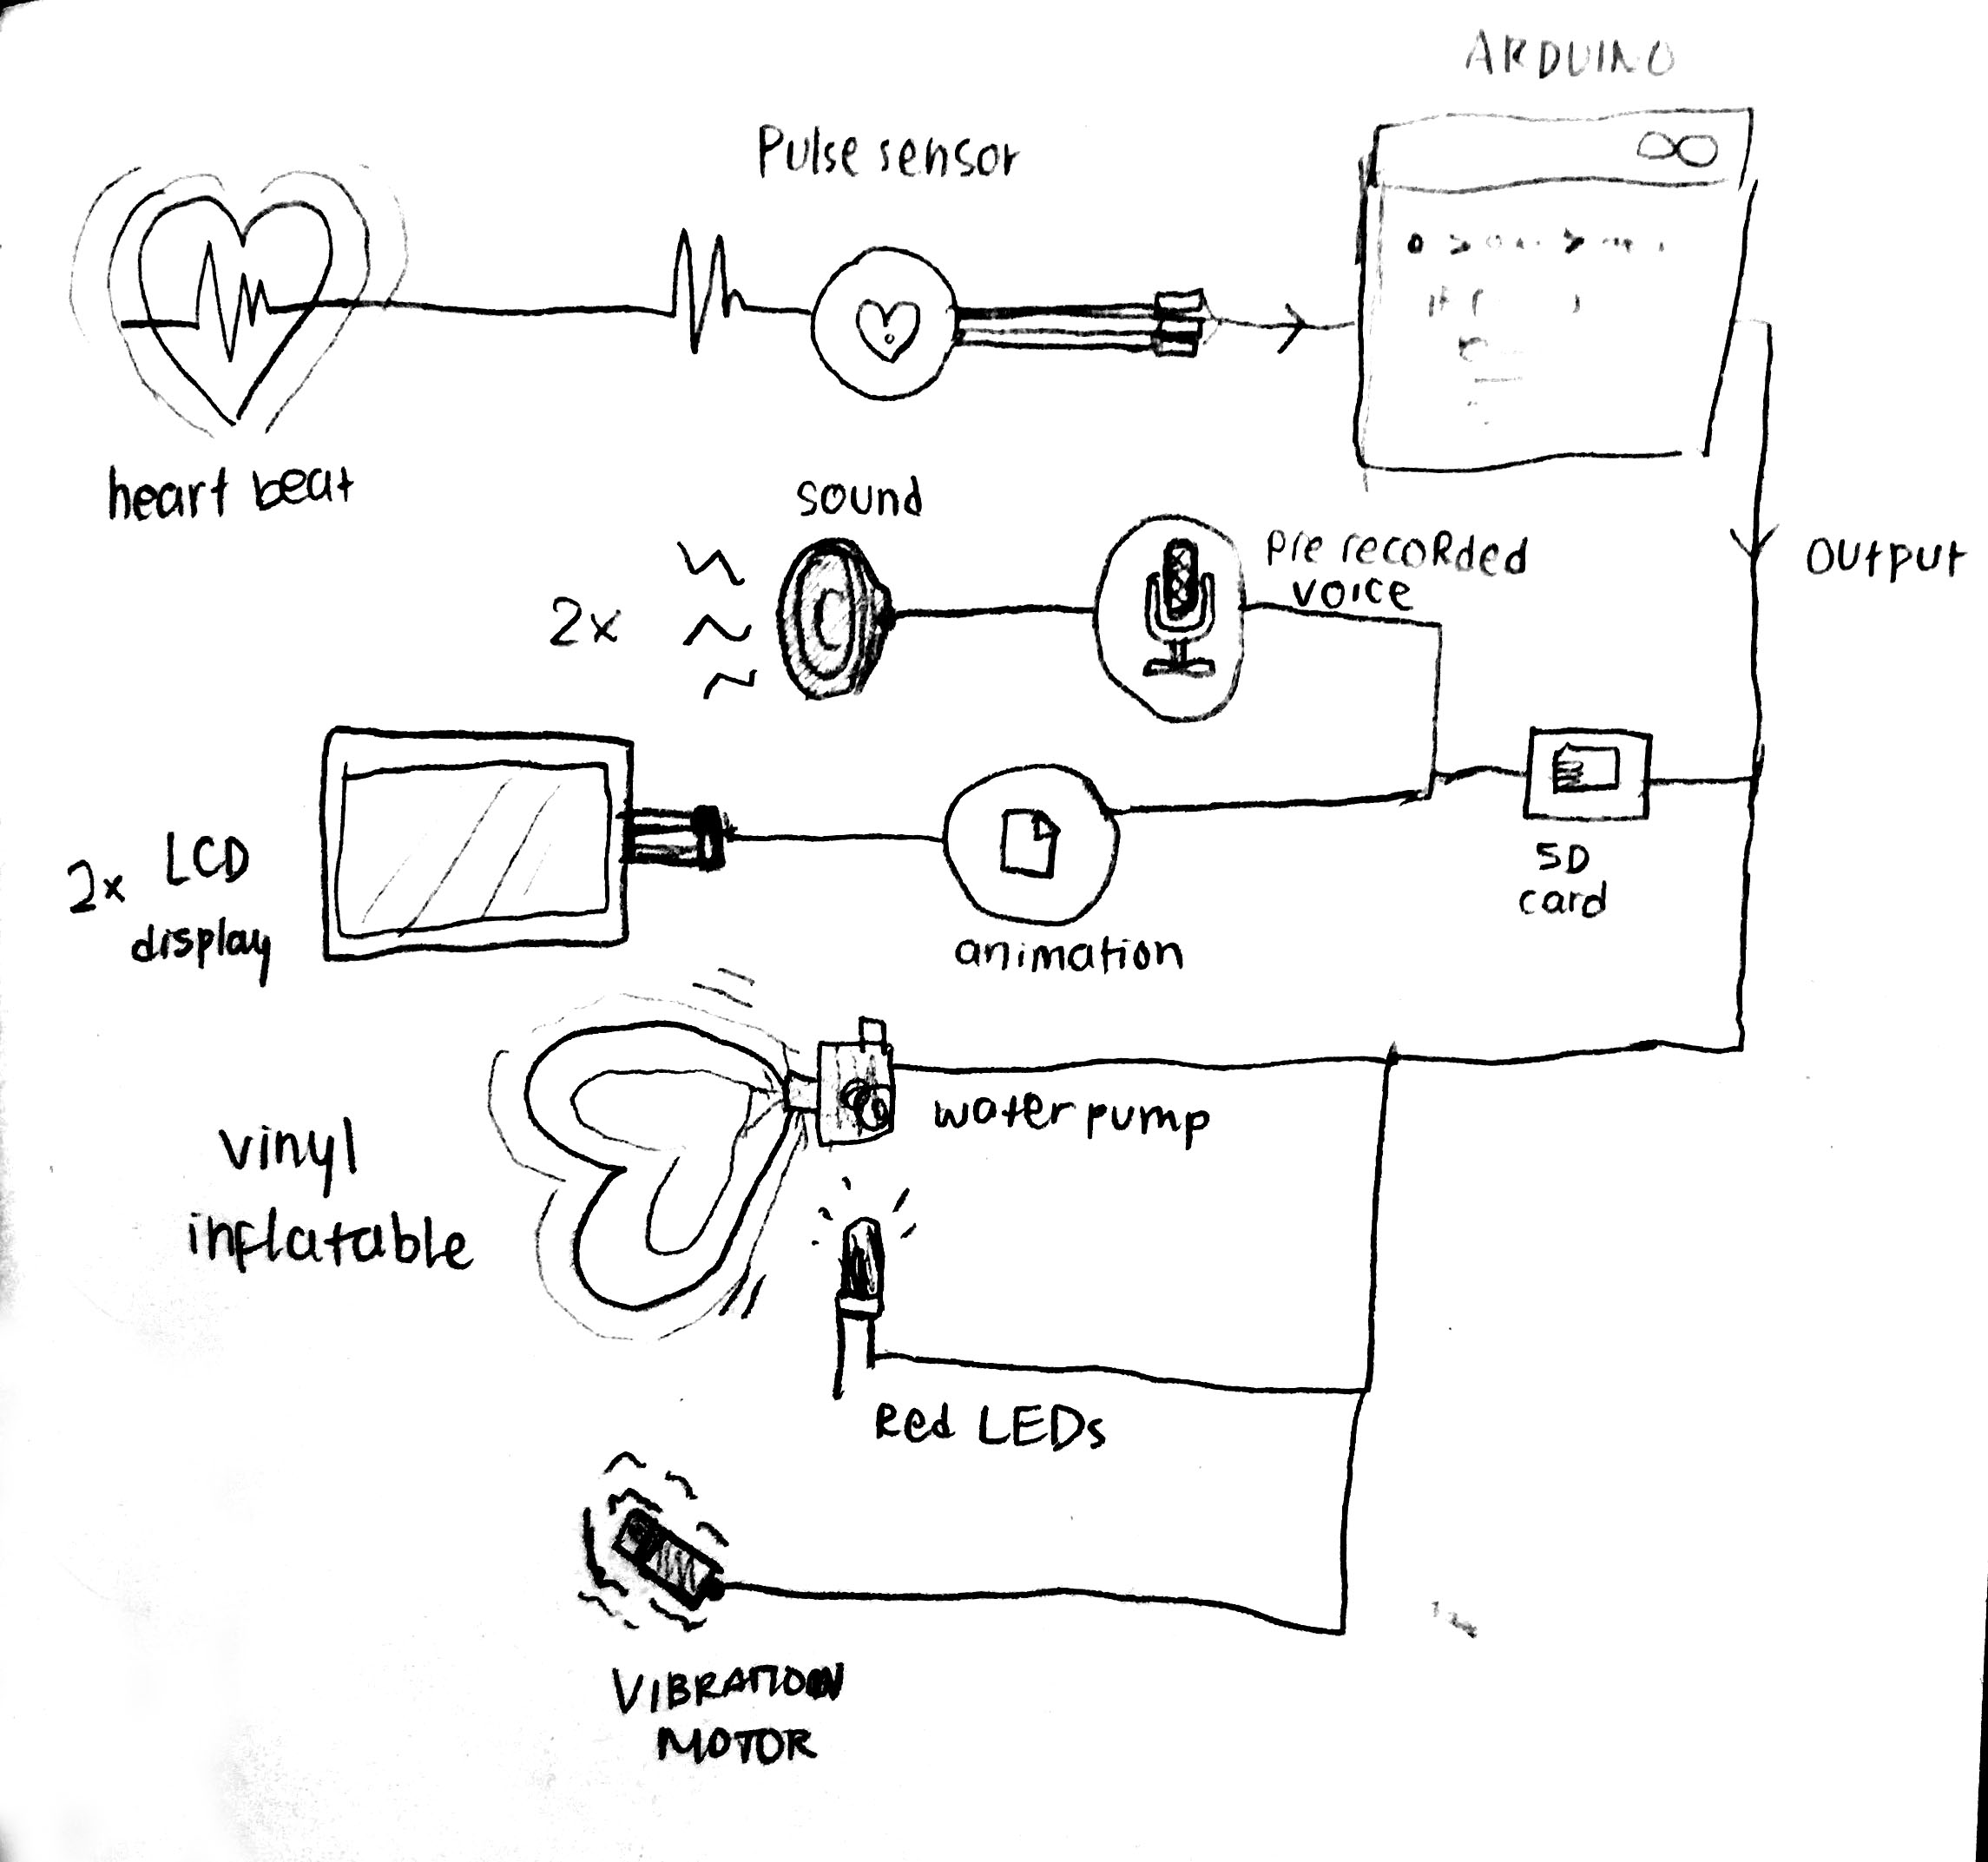 ARDUINO
Pulse sensor
if (
heart beat
sound
pre recoRded
voice
output
2x
SD
card
2x LCD
display
animation
water pump
vinyl
inflatable
Red LEDs
VIBRATION
MOTOR